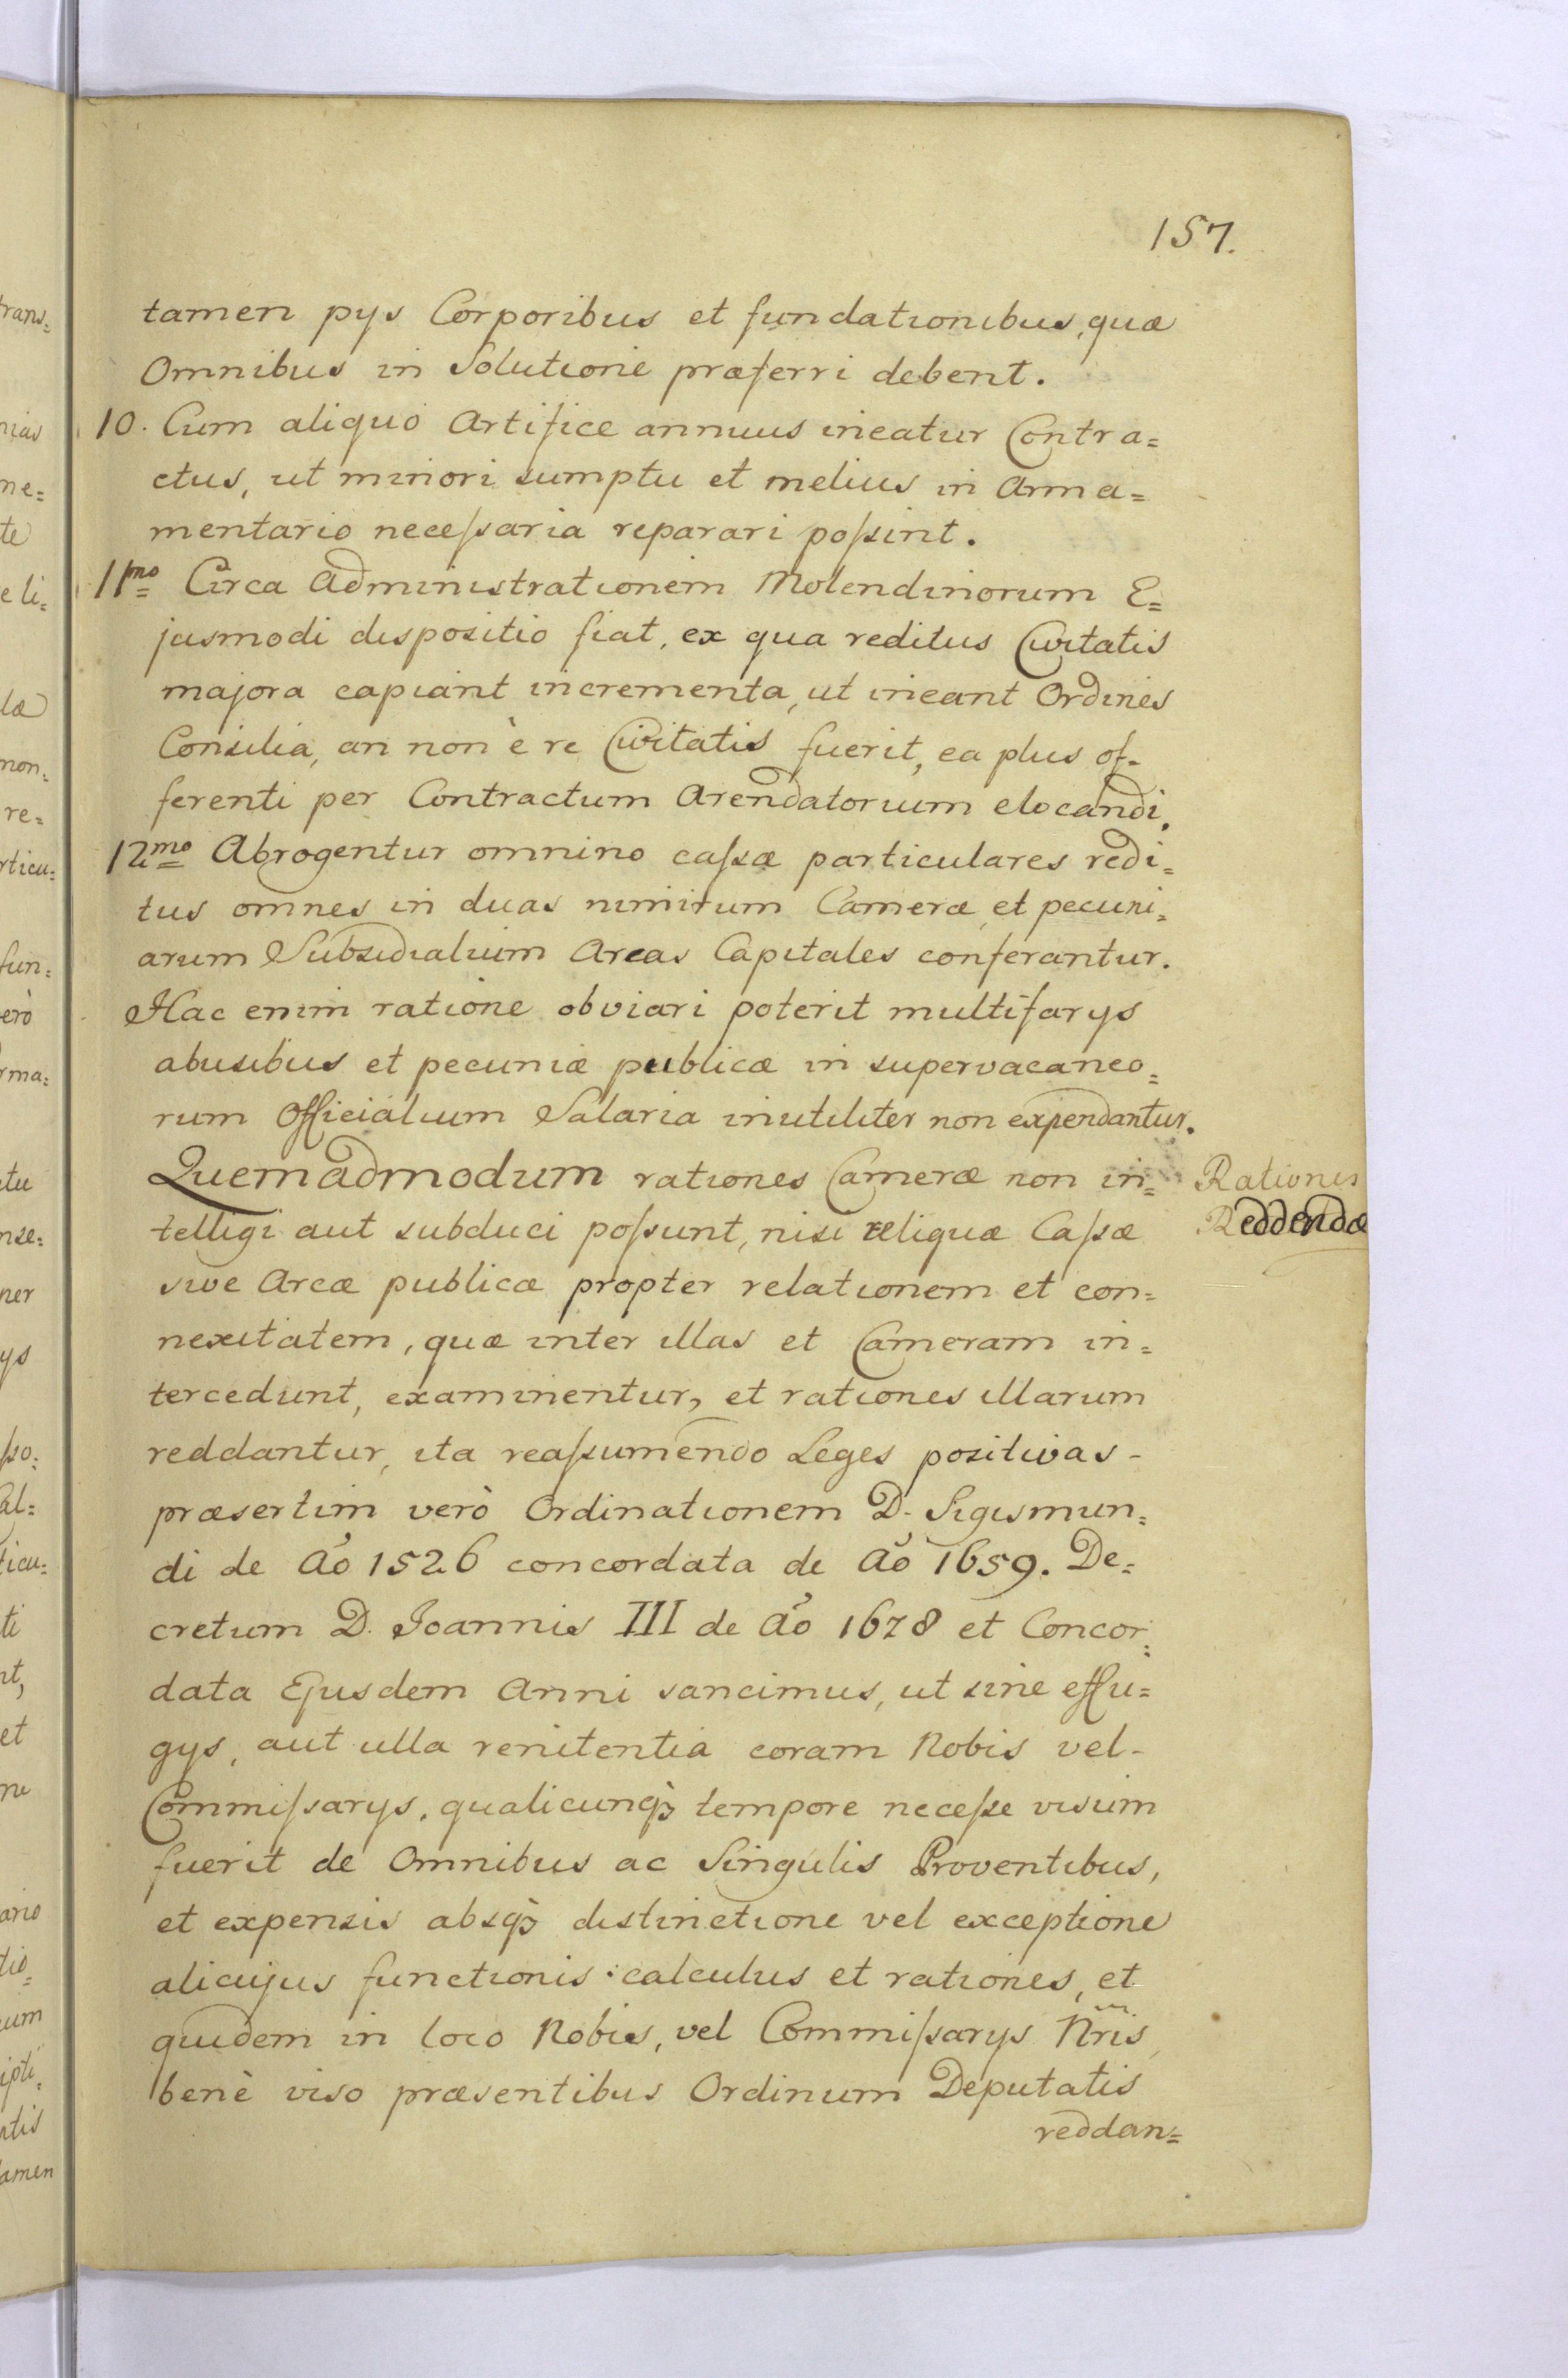 157.
tamen pys Corporibus et fundationibus, quæ
Omnibus in Solutione præferri debent.
10. Cum aliquo Artifice annuus ineatur Contra=
ctus, ut minori sumptu et melius in Arma=
mentario neceſsaria reparari poſsint.
11mo Circa Administrationem Molendinorum E=
jusmodi dispositio fiat, ex qua reditus Civitatis
majora capiant incrementa, ut ineant Ordines
Consilia, an non è re Civitatis fuerit, ea plus of-
ferenti per Contractum Arendatorium elocandi.
12mo Abrogentur omnino caſsæ particulares redi=
tus omnes in duas nimirum Cameræ, et pecuni=
arum Subsidialium Arcas Capitales conferantur.
Hac enim ratione obviari poterit multifarys
abusibus et pecuniæ publicæ in supervacaneo=
rum Officialium Salaria inutiliter non expendantur.
Quemadmodum rationes Cameræ non in=
telligi aut subduci poſsunt, nisi reliquæ Caſsæ
sive Arcæ publicæ propter relationem et con=
nexitatem, quæ inter illas et Cameram in=
tercedunt, examinentur, et rationes illarum
reddantur, ita reaſsumendo Leges positivas -
præsertim verò Ordinationem D. Sigismun=
di de Aõ 1526 concordata de Aõ 1659. De=
cretum D. Joannis III de Aõ 1678 et Concor=
data Ejusdem Anni sancimus, ut sine effu=
gys, aut ulla renitentia coram Nobis vel-
Commiſsarys, qualicunqꝫ tempore neceſse visum
fuerit de Omnibus ac Singulis Proventibus,
et expensis absqꝫ distinctione vel exceptione
alicujus functionis calculus et rationes, et
quidem in loco Nobis, vel Commiſsarys Nr̃is
benè viso præsentibus Ordinum Deputatis
reddan=
Rationes
Reddendæ